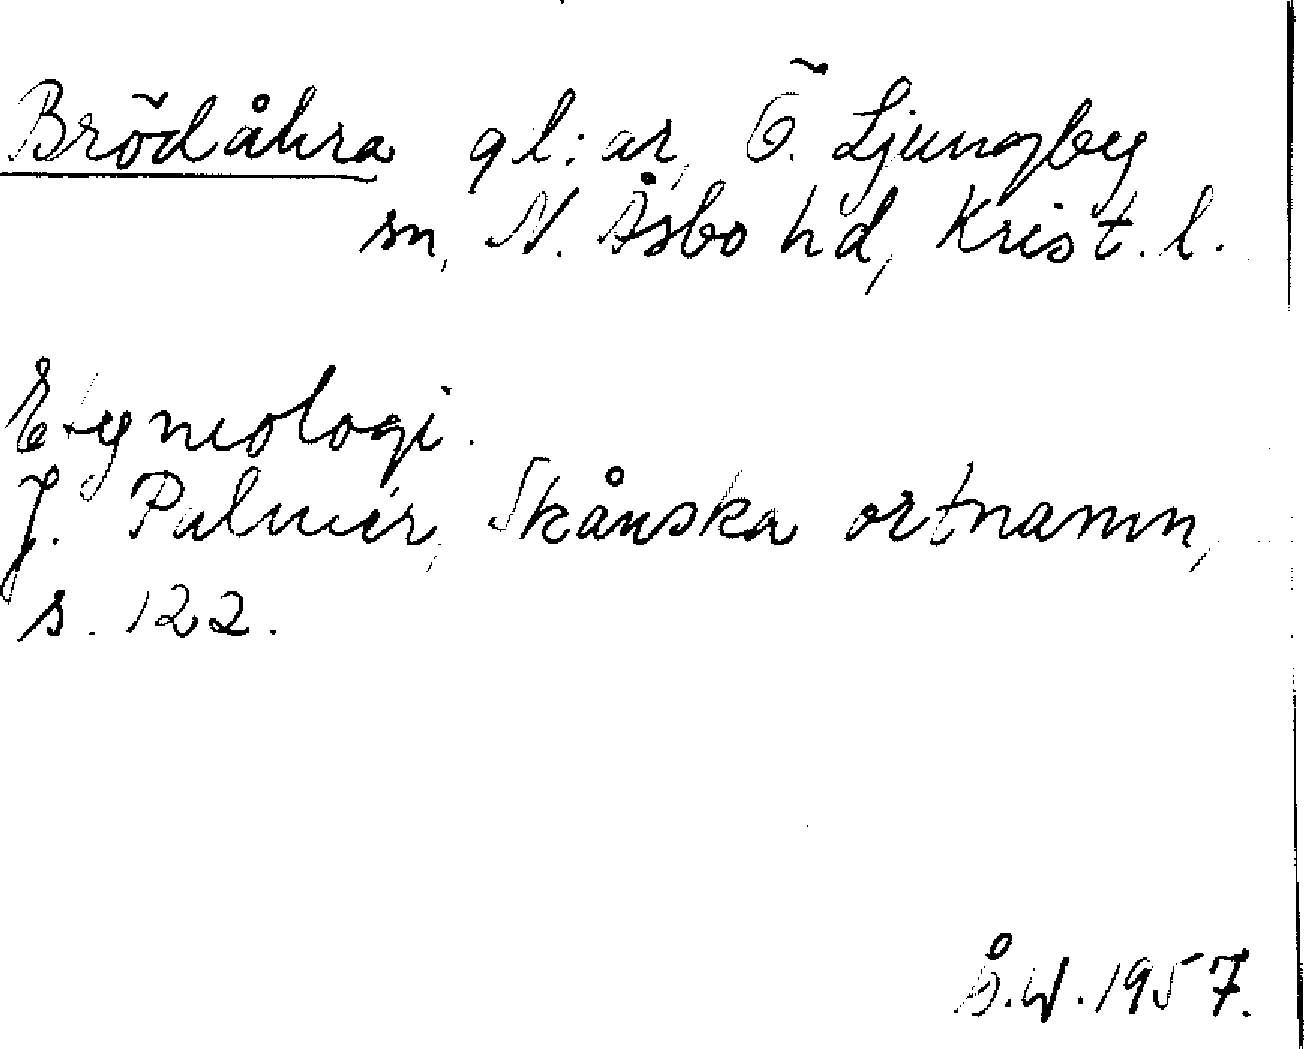 Brödåkra gl:ar, Ö. Ljungby
sn, N. Åsbo hd, Krist. l.
Etymologi.
J. Palmér, Skånska ortnamn,
s. 122.
Å.W. 1957.